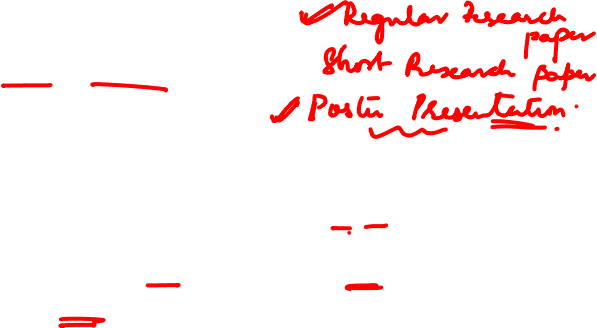 Regular research
paper
Short Research paper
Poster Presentation.